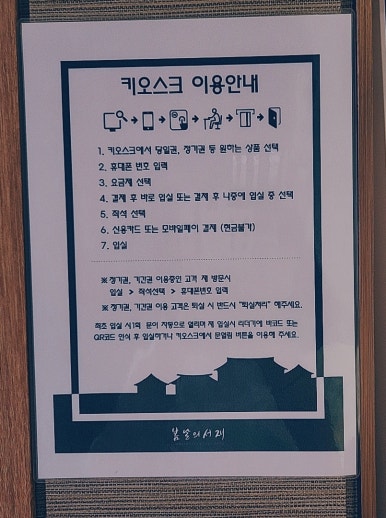 키오스크 이용안내
1. 키오스크에서 당일권, 정기권 등 원하는 상품 선택
2. 휴대폰 번호 입력
3. 요금제 선택
4. 결제 후 바로 입실 또는 결제 후 나중에 입실 중 선택
5. 좌석 선택
6. 신용카드 또는 모바일페이 결제 (현금불가)
7. 입실
※ 정기권, 기간권 이용중인 고객 재 방문시
입실 > 좌석선택 > 휴대폰번호 입력
※ 정기권, 기간권 이용 고객은 퇴실 시 반드시 "퇴실처리" 해주세요.
최초 입실 시 1회 문이 자동으로 열리며 재 입실시 리더기에 바코드 또는
QR코드 인식 후 입실하거나 키오스크에서 문열림 버튼을 이용해 주세요.
봄날의서재